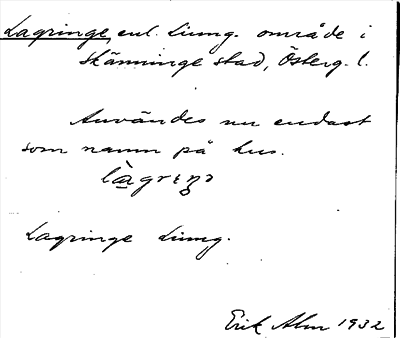 Lagringe, enl. Liung. område i
Skänninge stad, Österg. l.
Användes nu endast
som namn på hus.
làgriŋə
Lagringe Liung.
Erik Alm 1932